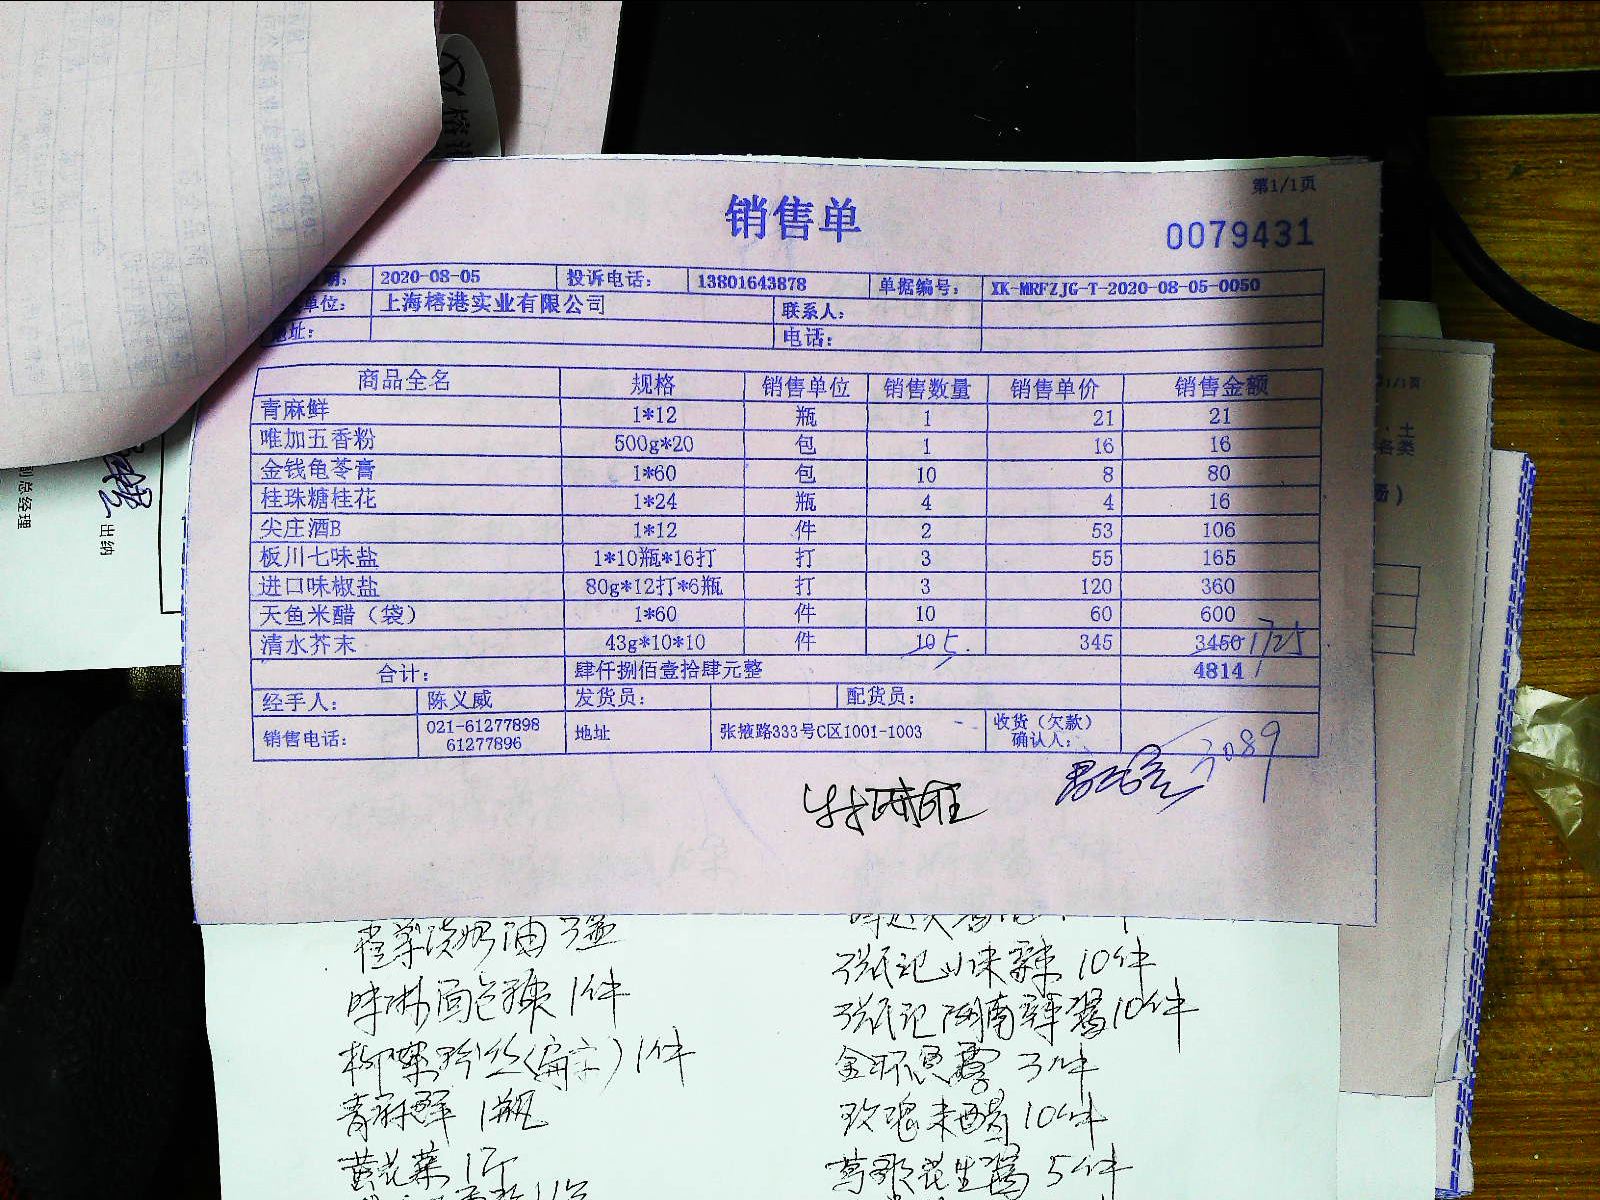 第1/1页
销售单
0079431
期: 2020-08-05 投诉电话: 13801643878 单据编号: XK-MRFZJG-T-2020-08-05-0050
单位: 上海榕港实业有限公司 联系人:
地址: 电话:
商品全名 规格 销售单位 销售数量 销售单价 销售金额
青麻鲜 1*12 瓶 1 21 21
唯加五香粉 500g*20 包 1 16 16
金钱龟苓膏 1*60 包 10 8 80
桂珠糖桂花 1*24 瓶 4 4 16
尖庄酒B 1*12 件 2 53 106
板川七味盐 1*10瓶*16打 打 3 55 165
进口味椒盐 80g*12打*6瓶 打 3 120 360
天鱼米醋（袋） 1*60 件 10 60 600
清水芥末 43g*10*10 件 10 5. 345 3450 1725
合计: 肆仟捌佰壹拾肆元整 4814
经手人: 陈义威 发货员: 配货员:
销售电话: 021-61277898 61277896 地址 张掖路333号C区1001-1003 收货（欠款）确认人:
3089
副总经理
出纳
1件
张氏记 10件
张氏记 10件
柳 粉丝(扁) 1件
金环 3件
青麻鲜 1瓶
玫瑰米醋 10件
黄花菜 1斤
花生酱 5件